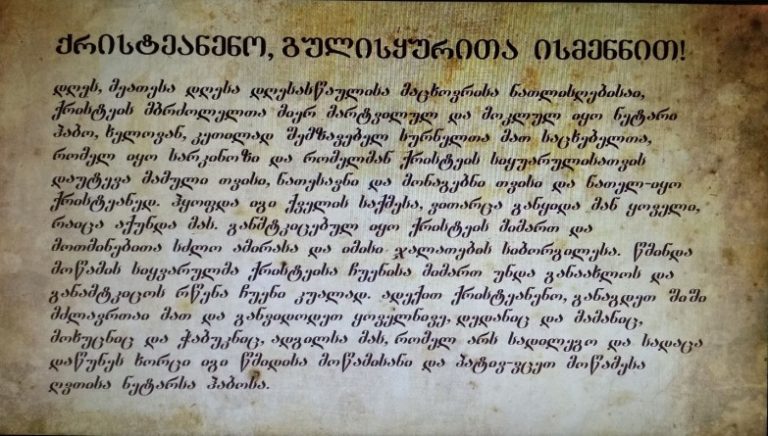 ქრისტეანენო, გულისყურითა ისმენნით!
დღეს, მეათესა დღესა დღესასწაულისა მაცხოვრისა ნათლისღებისაი,
ქრისტეის მბრძოლელთა მიერ მარტვილულ და მოკლულ იყო ნეტარი
ჰაბო, ხელოვან, კეთილად შემზავებელ სურნელთა მათ საცხებელთა,
რომელ იყო სარკინოზი და რომელმან ქრისტეის სიყუარულისათვის
დაუტევა მამული თვისი, ნათესავნი და მონაგებნი თვისი და ნათელ-იყო
ქრისტეანედ. ჰყოფდა იგი ქველის საქმესა, ვითარცა განყიდა მან ყოველი,
რაიცა აქუნდა მას. განმტკიცებულ იყო ქრისტეის მიმართ და
მოთმინებითა სძლო ამირასა და იმისი ჯალათების სიბორგილესა. წმინდა
მოწამის სიყვარულმა ქრისტეისა ჩუენისა მიმართ უნდა განაახლოს და
განამტკიცოს რწენა ჩუენი კუალად. ადექით ქრისტეანენო, განაგდეთ შიში
მძლავრთაი მათ და განვიდოდეთ ყოველნივე, დედანიც და მამანიც,
მოხუცნიც და ჭაბუკნიც, ადგილსა მას, რომელ არს სადილეგო და სადაცა
დაწუნეს ხორცი იგი წმიდისა მოწამისანი და პატივ-ვცეთ მოწამესა
ღვთისა ნეტარსა ჰაბოსა.